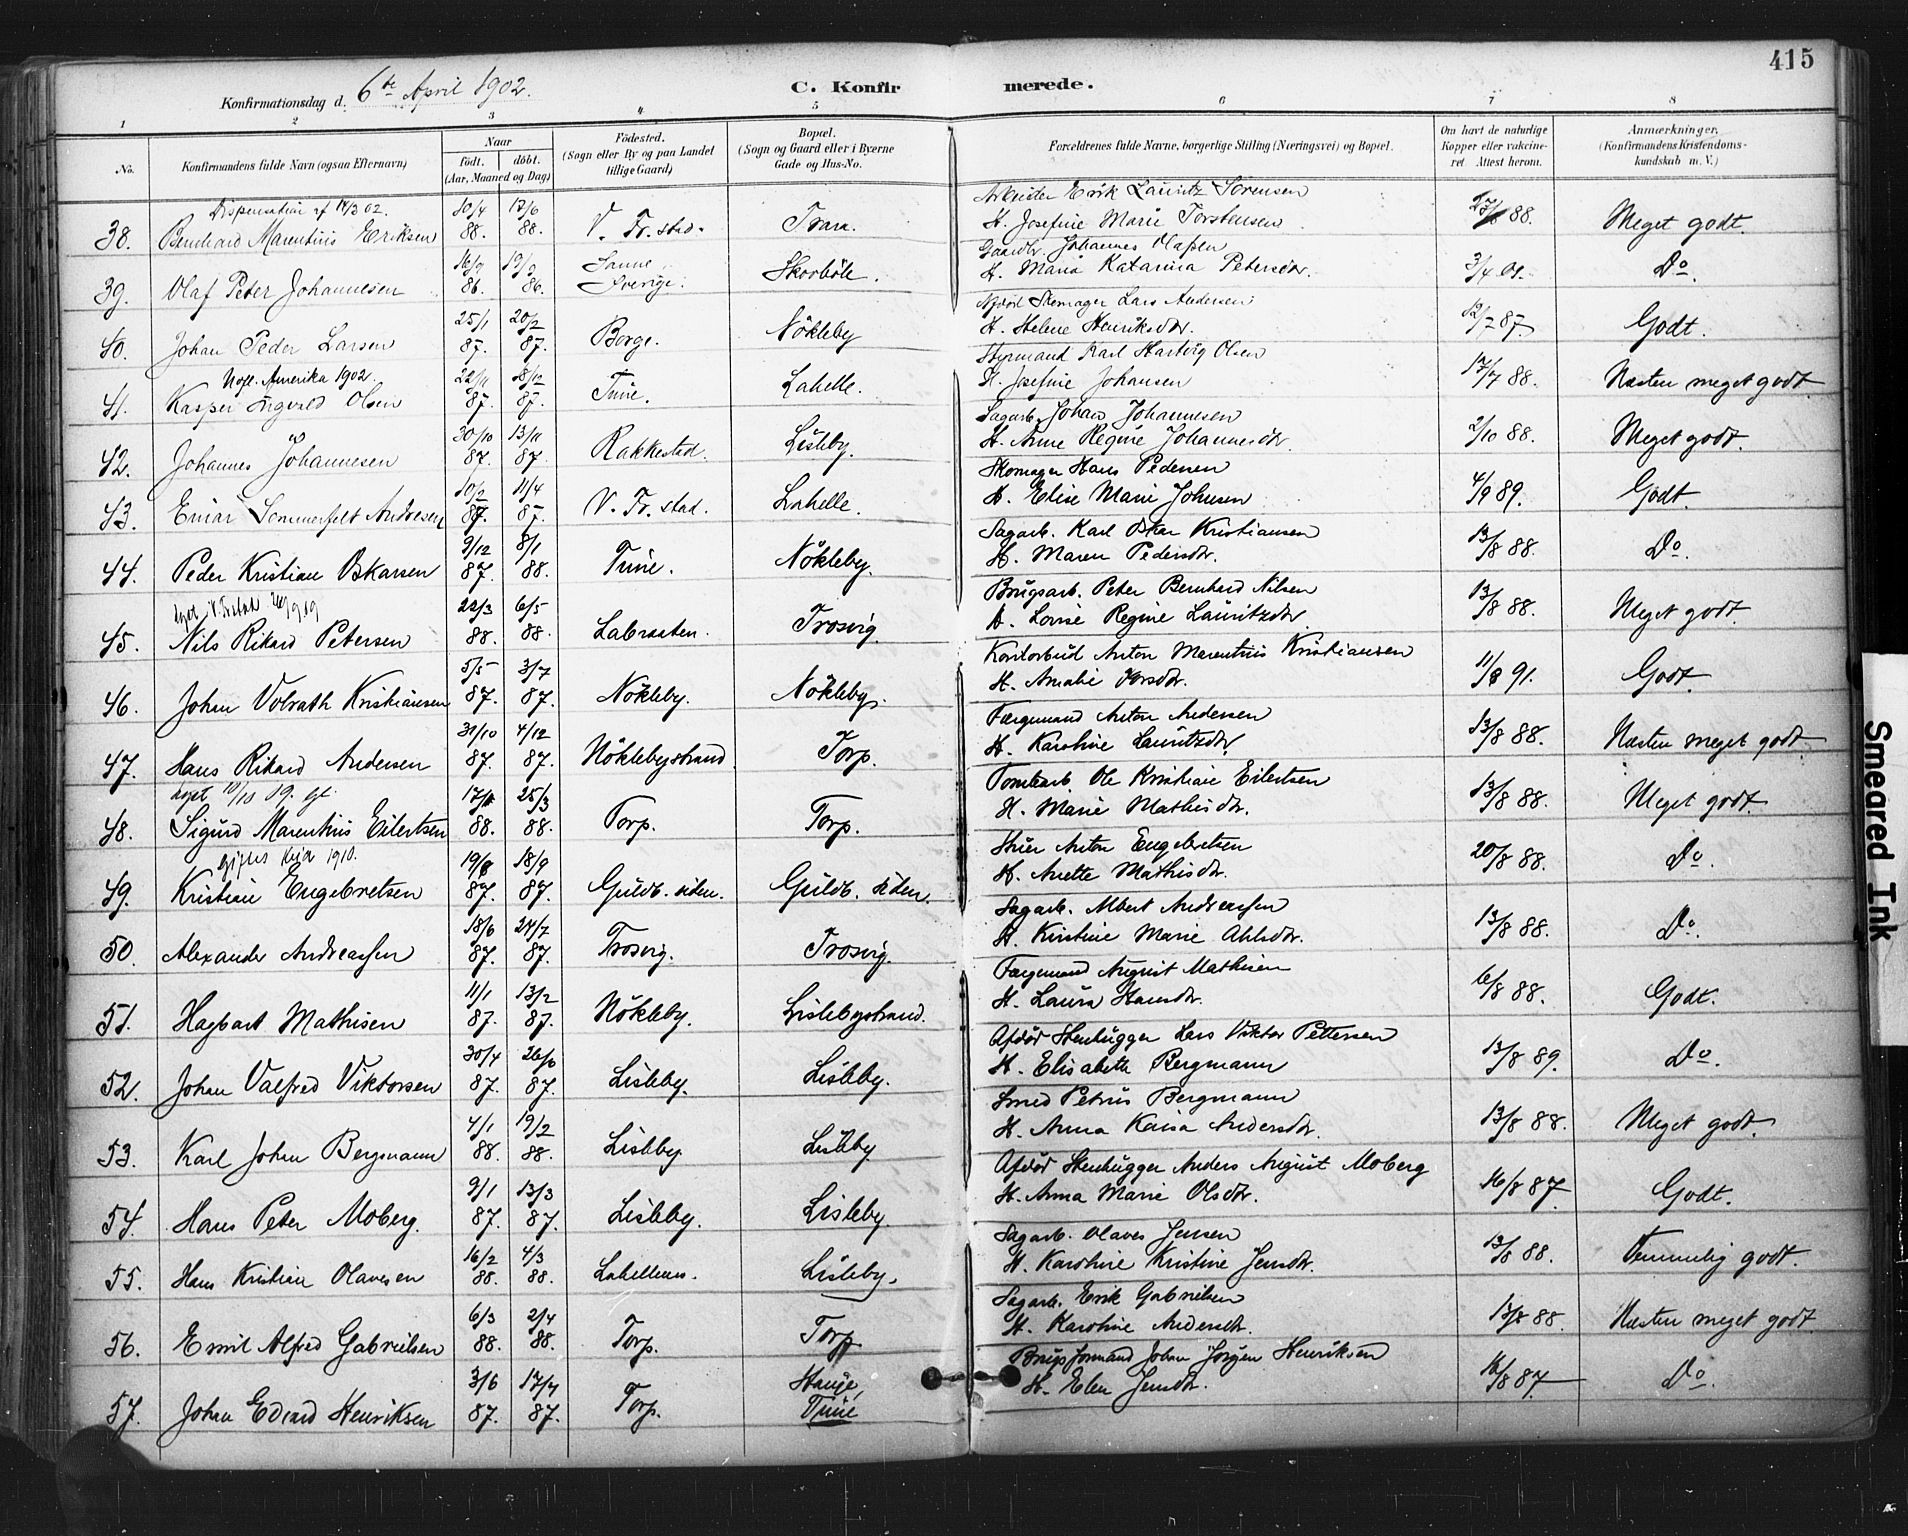 415
Konfirmationsdag d. 6te April 1902.
C. Konfirmerede.
1 2 3 4 5 6 7 8
No. Konfirmandens fulde Navn (ogsaa Efternavn) Naar født. døbt. (Aar, Maaned og Dag) Fødested. (Sogn eller By og paa Landet tillige Gaard) Bopæl. (Sogn og Gaard eller i Byerne Gade og Hus-No. Forældrenes fulde Navne, borgerlige Stilling (Næringsvei) og Bopæl. Om havt de naturlige Kopper eller vakcineret. Attest herom. Anmærkninger. (Konfirmandens Kristendomskundskab m. V.)
Dispensation af 14/3 02. 10/4 13/6 Arbeider Erik Lauritz Sörensen
38. Bernhard Marentius Eriksen 88. 88. V. Fr.stad. Trara. H. Josefine Marie Torstensen 88. Meget godt.
16/9 19/9 Sanne Gaardbr. Johannes Olafsen
39. Olaf Peter Johannesen 86. 86. Sverige. Skovböle. H. Maria Katarina Petersdr. 3/4 01. Do.
25/1 20/2 Afdöd Skomager Lars Andersen
40. Johan Peder Larsen 87. 87. Borge. Nökleby H. Helene Henriksdr. 12/7 87 Godt.
Uofl. Amerika 1902. 22/11 18/12 Styrmand Karl Hartvig Olsen
41. Kasper Ingvald Olsen 87. 87. Tune. Lahelle. H. Josefine Johansen 17/7 88. Næsten meget godt
30/10 13/11 Sagarb. Johan Johannesen
42. Johannes Johannesen 87. 87 Rakkestad. Lisleby. H. Anne Regine Johannesdr. 2/10 88. Meget godt.
10/2 11/4 Skomager Hans Pedersen
43. Einar Sommerfelt Andresen 87. 87. V. Fr. stad. Lahelle. H. Elise Marie Johnsen 4/9 89. Godt.
9/12 8/1 Sagarb. Karl Oskar Kristiansen
44. Peder Kristian Oskarsen 87. 88. Tune. Nökleby. H. Maren Pedersdr. 13/8 88. Do.
22/3 6/5 Brugsarb. Peter Bernhard Nilsen
45. Nils Rikard Petersen 88. 88. Labraaten. Trosvig. H. Lovise Regine Lauritzdr. 13/8 88. Meget godt.
5/5 3/7 Kontorbud Anton Marentius Kristiansen
46. Johan Volrath Kristiansen 87. 87. Nökleby. Nökleby. H. Amalie 11/8 91. Godt.
31/10 4/12 Færgemand Anton Andersen
47. Hans Rikard Andersen 87. 87. Nöklebystrand Torp. H. Karoline Lauritzdr. 13/8 88. Næsten meget godt
10/10 09. 25/3 Tomtearb. Ole Kristian Eilertsen
48. Sigurd Marentius Eilertsen 88. 88. Torp. Torp. H. Marie Mathisdr. 13/8 88. Meget godt
1910. 18/9 Anton Engebretsen
49. Kristian Engebretsen 87. 87. Guldb. siden. Guldb. siden. H. Anette Mathisdr. 20/8 88. Do.
18/6 24/7 Sagarb. Albert Andreassen
50. Alexander Andreassen 87. 87. Trosvig. Trosvig. H. Kirstine Marie 13/8 88. Do.
11/1 13/2 Færgemand August Mathisen
51. Hagbart Mathisen 87. 87. Nökleby. Lislebystrand. H. Laura Hansdr. 6/8 88. Godt.
30/4 26/6 Afdöd Stenhugger Lars Viktor Pettersen
52. Johan Valfred Viktorsen 87. 87. Lisleby. Lisleby. H. Elisabeth Bergmann 13/8 89. Do.
4/1 19/2 Smed Petrus Bergmann
53. Karl Johan Bergmann 88. 88. Lisleby. Lisleby H. Anna Kaisa Andersdr. 13/8 88. Meget godt.
9/1 13/3 Afdöd Stenhugger Anders August Moberg
54. Hans Peter Moberg. 87. 87. Lisleby. Lisleby. H. Anna Marie Olsdr. 16/8 87 Godt.
16/2 4/3 Sagarb. Olaves Jensen
55. Hans Kristian Olavesen 88. 88. Lahellen. Lisleby. H. Karoline Kristine Jensdr. 13/8 88. Temmelig godt.
6/3 2/4 Sagarb. Erik Gabrielsen
56. Emil Alfred Gabrielsen 88. 88. Torp. Torp H. Karoline Andersdr. 13/8 88. Næsten meget godt.
3/6 17/7 Hauge, Brugsformand Johan Jörgen Henriksen
57. Johan Edvard Henriksen 87. 87. Torp. Tune H. Elen Jensdr. 16/8 87 Do.
Smeared Ink